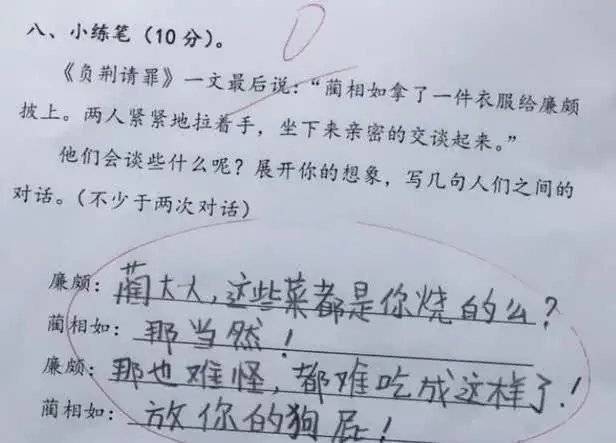 八、小练笔(10分)。
《负荆请罪》一文最后说:“蔺相如拿了一件衣服给廉颇
披上。两人紧紧地拉着手,坐下来亲密的交谈起来。”
他们会谈些什么呢?展开你的想象,写几句人们之间的
对话。(不少于两次对话)
廉颇:蔺大人,这些菜都是你烧的么?
蔺相如:那当然!
廉颇:那也难怪,都难吃成这样了!
蔺相如:放你的狗屁!